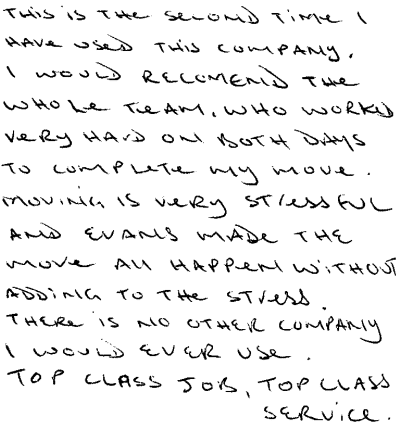 THIS IS THE SECOND TIME I
HAVE USED THIS COMPANY.
I WOULD RECOMEND THE
WHOLE TEAM, WHO WORKED
VERY HARD ON BOTH DAYS
TO COMPLETE MY MOVE.
MOVING IS VERY STRESSFUL
AND EVANS MADE THE
MOVE ALL HAPPEN WITHOUT
ADDING TO THE STRESS.
THERE IS NO OTHER COMPANY
I WOULD EVER USE.
TOP CLASS JOB, TOP CLASS
SERVICE.